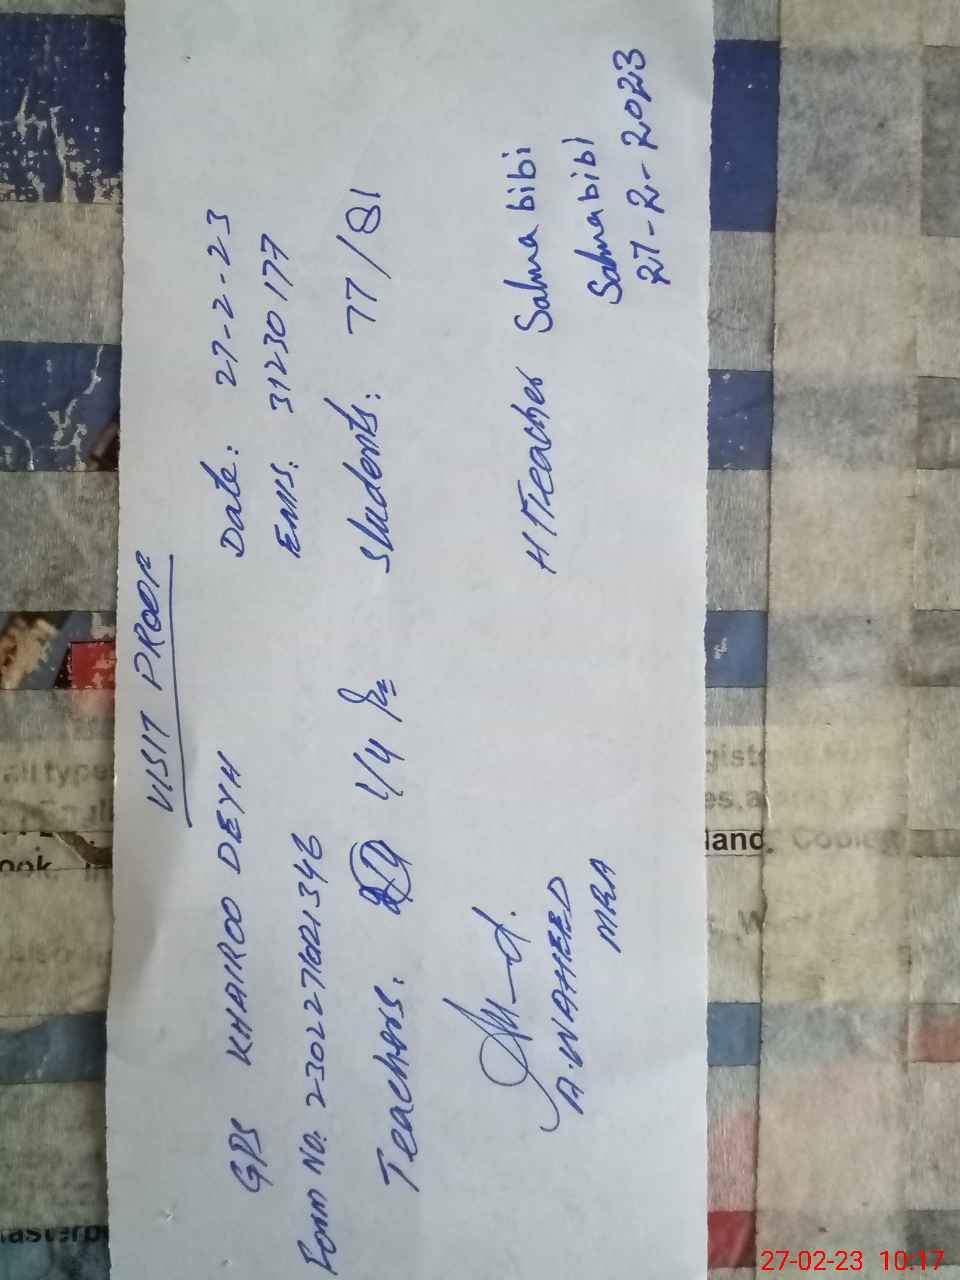 VISIT PROOF
GPS KHAIROO DEYH Date: 27-2-23
Form No: 2302271021346 EMIS: 31230177
Teachers: 1/4 Students: 77/81
H/Teacher Salma bibi
A.WAHEED Salma bibi
MEA 27-2-2023
all type
ook.
land.
es.a
asterb
27-02-23 10:17